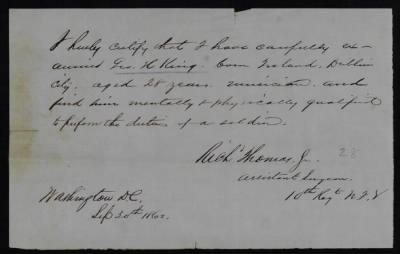 I hereby certify that I have carefully ex-
amined Geo. H King. born Ireland, Dublin
City, aged 28 years. musician. and
find him mentally & physically qualified
to perform the duties of a soldier.
Richd Thomas, Jr. 28
Assistant Surgeon
10th Regt N.J.V
Washington D.C.
Sep 30th 1862.